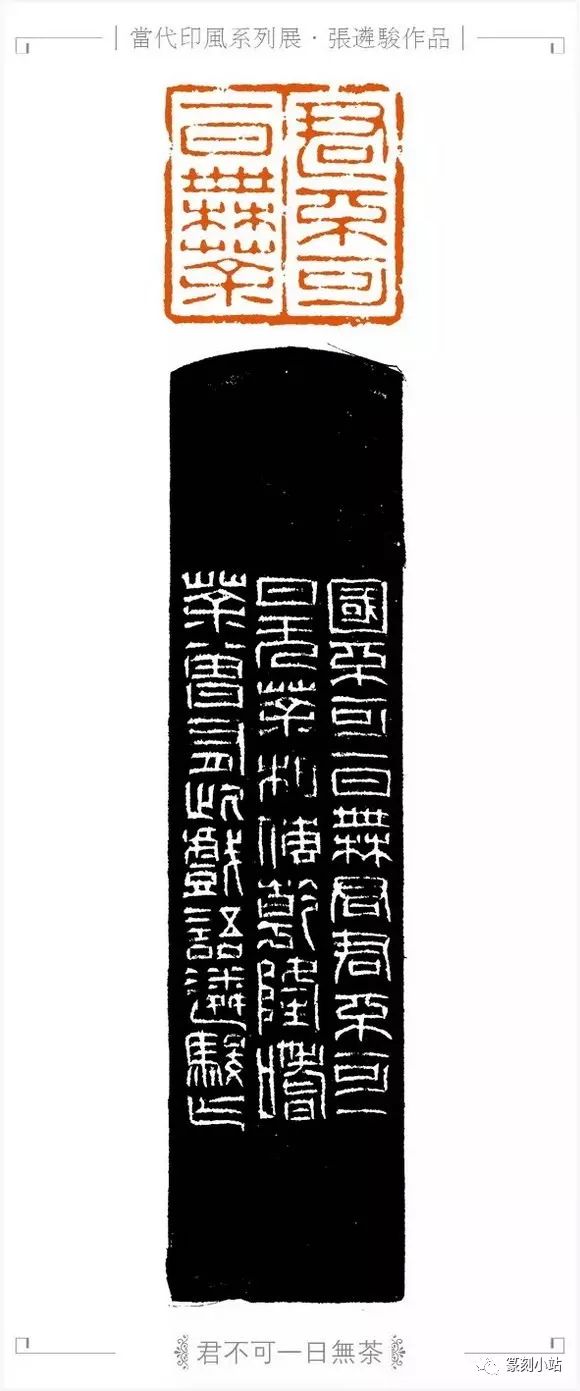 當代印風系列展·張遴駿作品
君不可
一日無茶
國不可一日無君君不可一
日无茶相傳乾隆嗜
茶曾有此戲語遴駿乍
君不可一日無茶
篆刻小站